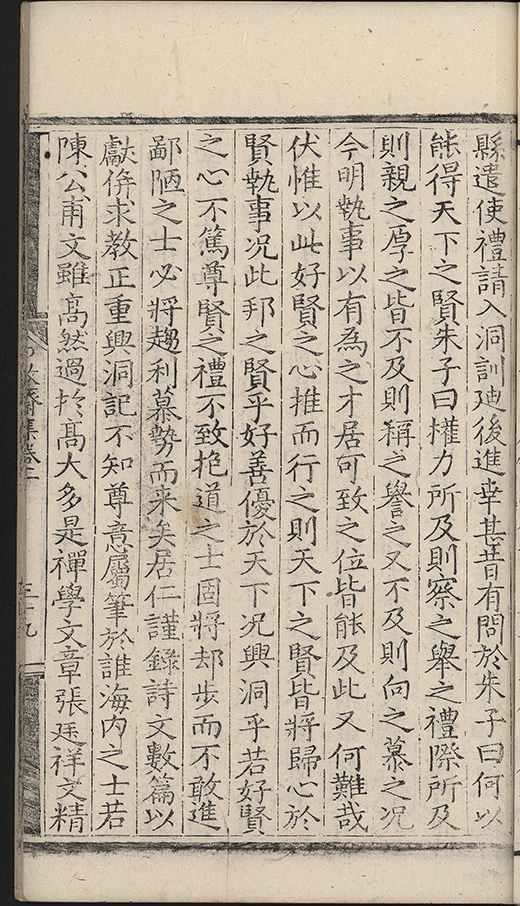 縣遣使禮請入洞訓廸後進幸甚昔有問於朱子曰何以
能得天下之賢朱子曰權力所及則察之舉之禮際所及
則親之厚之皆不及則稱之譽之又不及則向之慕之况
今明執事以有為之才居可致之位皆能及此又何難哉
伏惟以此好賢之心推而行之則天下之賢皆將歸心於
賢執事况此邦之賢乎好善優於天下况興洞乎若好賢
之心不篤尊賢之禮不致抱道之士固將却步而不敢進
鄙陋之士必將趨利慕勢而来矣居仁謹錄詩文數篇以
獻併求教正重興洞記不知尊意屬筆於誰海内之士若
陳公甫文雖高然過於高大多是禪學文章張廷祥文精
敬齋集卷二
三十九